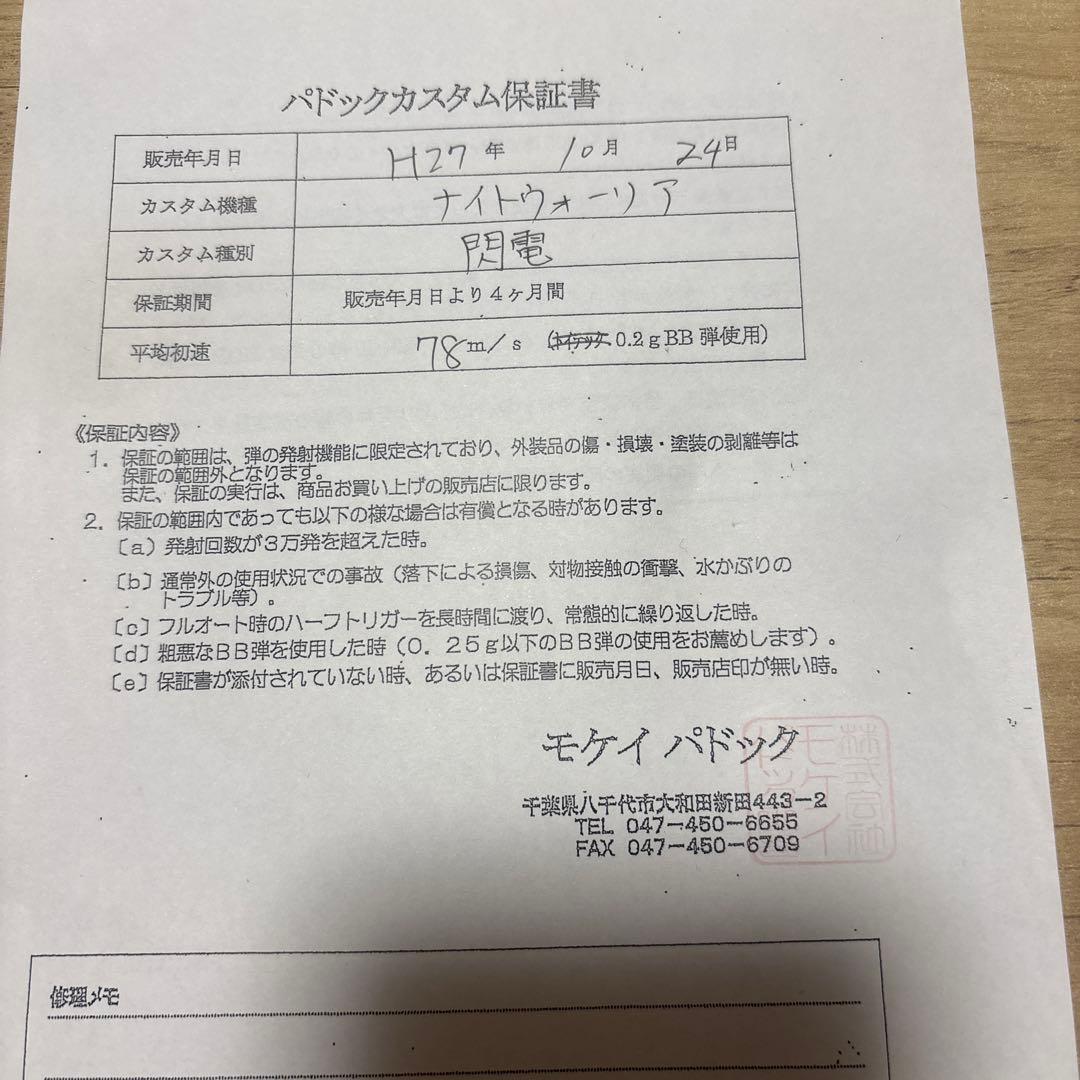 パドックカスタム保証書
販売年月日 H27年 10月 24日
カスタム機種 ナイトウォーリア
カスタム種別 閃電
保証期間 販売年月日より4ヶ月間
平均初速 78m/s (0.2gBB弾使用)
《保証内容》
1. 保証の範囲は、弾の発射機能に限定されており、外装品の傷・損壊・塗装の剥離等は
保証の範囲外となります。
また、保証の実行は、商品お買い上げの販売店に限ります。
2. 保証の範囲内であっても以下の様な場合は有償となる時があります。
〔a〕発射回数が3万発を超えた時。
〔b〕通常外の使用状況での事故（落下による損傷、対物接触の衝撃、水かぶりの
トラブル等）。
〔c〕フルオート時のハーフトリガーを長時間に渡り、常態的に繰り返した時。
〔d〕粗悪なBB弾を使用した時（0．25g以下のBB弾の使用をお薦めします）。
〔e〕保証書が添付されていない時、あるいは保証書に販売月日、販売店印が無い時。
モケイ パドック
株式会社モケイパドック
千葉県八千代市大和田新田443−2
TEL 047−450−6655
FAX 047−450−6709
修理メモ